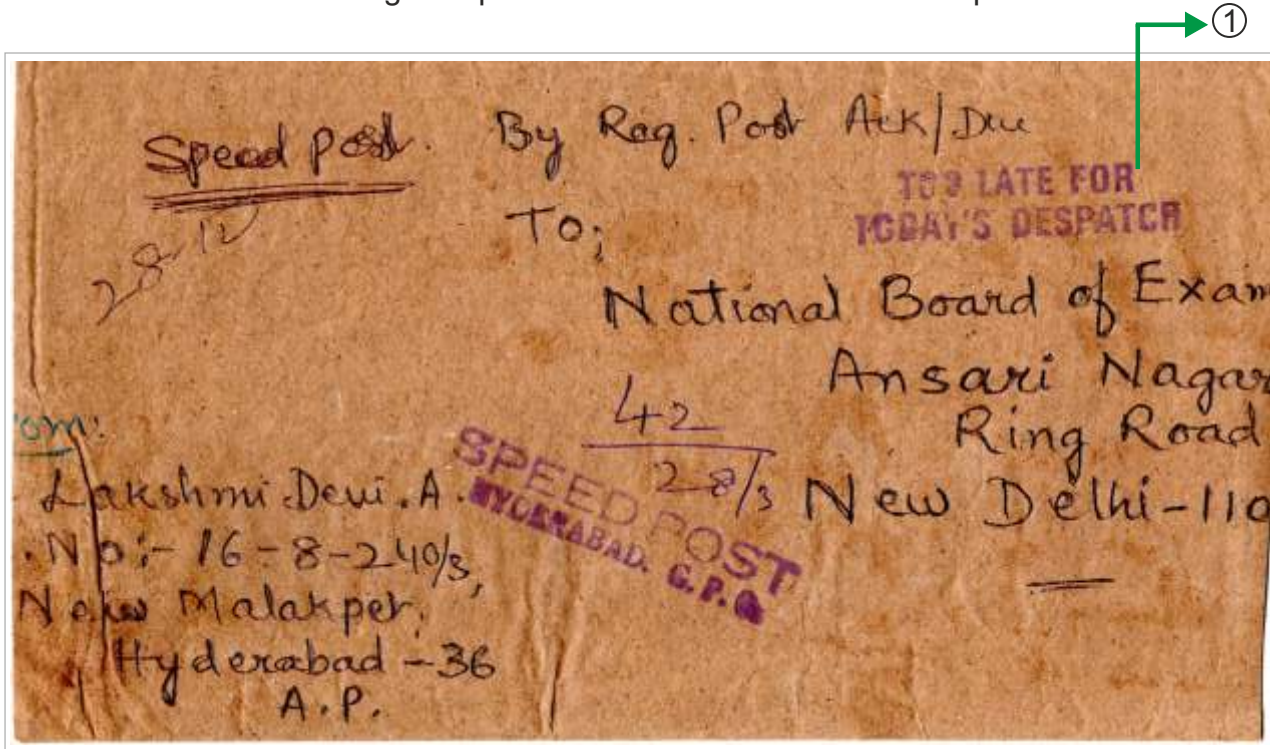 ①
Speed Post. By Reg. Post Ack/Due
TOO LATE FOR
TODAY'S DESPATCH
To;
28-12
National Board of Exam
Ansari Nagar
Ring Road
New Delhi-110
42
28/3
SPEED POST
HYDERABAD. G.P.O.
om:
Lakshmi Devi. A.
. No:- 16-8-240/3,
New Malakpet,
Hyderabad -36
A.P.